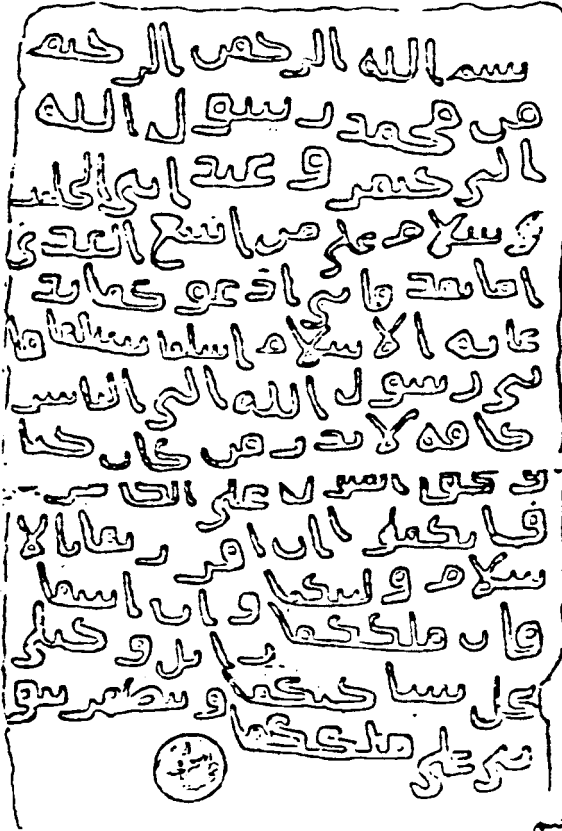 بسم الله الرحمن الرحيم
من محمد رسول الله
الى جيفر وعبد ابنى الجلند
وسلام على من اتبع الهدى
اما بعد فانى ادعوكما بد
عايه الاسلام اسلما تسلما فا
نى رسول الله الى الناس
كافه لانذر من كان حيا
ويحق القول على الكافرين
فانكما ان اقررتما بالا
سلام وليتكما وان ابيتما
فان ملككما زايل وخيلى
تحل بساحتكما وتظهر نبو
تى على ملككما